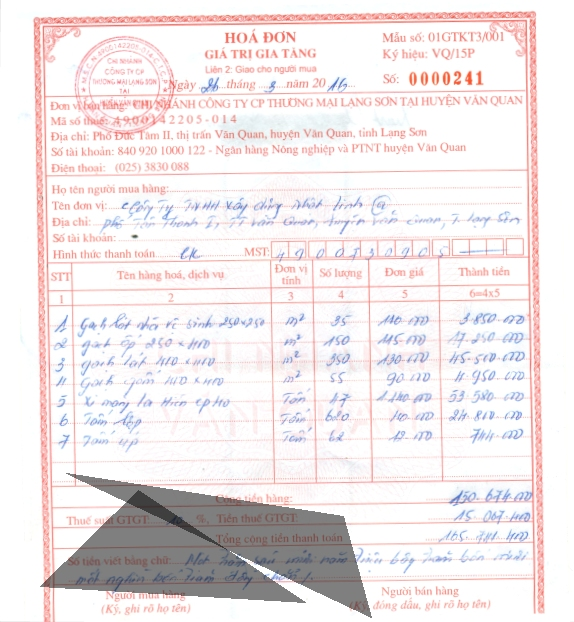 HOÁ ĐƠN
GIÁ TRỊ GIA TĂNG
Liên 2: Giao cho người mua
Ngày 26 tháng 3 năm 2016
Mẫu số: 01GTKT3/001
Ký hiệu: VQ/15P
Số: 0000241
M.S.C.N:4900142205-014-C.T.C.P
CHI NHÁNH
CÔNG TY CP
THƯƠNG MẠI LẠNG SƠN
TẠI
Đơn vị bán hàng: CHI NHÁNH CÔNG TY CP THƯƠNG MẠI LẠNG SƠN TẠI HUYỆN VĂN QUAN
Mã số thuế: 4900142205-014
Địa chỉ: Phố Đức Tâm II, thị trấn Văn Quan, huyện Văn Quan, tỉnh Lạng Sơn
Số tài khoản: 840 920 1000 122 - Ngân hàng Nông nghiệp và PTNT huyện Văn Quan
Điện thoại: (025) 3830 088
Họ tên người mua hàng:
Tên đơn vị: Công ty TNHH xây dựng Nhật Linh
Địa chỉ: phố Tân Thanh I, TT Văn Quan, huyện Văn Quan, T. Lạng Sơn
Số tài khoản:
Hình thức thanh toán CK MST:
STT Tên hàng hoá, dịch vụ Đơn vị tính Số lượng Đơn giá Thành tiền
1 2 3 4 5 6=4x5
1 gạch lát nhà vệ sinh 250x250 m² 35 110.000 3.850.000
2 gạch ốp 250x400 m² 150 115.000 17.250.000
3 gạch lát 400x400 m² 350 130.000 45.500.000
4 gạch gốm 400x400 m² 55 90.000 4.950.000
5 Xi măng Tấn 47 1.140.000 53.580.000
6 Tấm lợp Tấm 620 40.000 24.800.000
7 Tấm úp Tấm 62 12.000 744.000
Cộng tiền hàng: 150.674.000
Thuế suất GTGT: 10 %, Tiền thuế GTGT: 15.067.400
Tổng cộng tiền thanh toán 165.741.400
Số tiền viết bằng chữ: Một trăm sáu mươi năm triệu bảy trăm bốn mươi
một nghìn bốn trăm đồng chẵn /.
Người mua hàng Người bán hàng
(Ký, ghi rõ họ tên) (Ký, đóng dấu, ghi rõ họ tên)